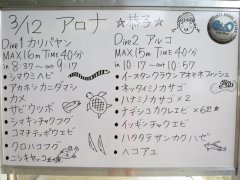 3/12 アロナ ☆恭子☆
Dive1 カリパヤン
MAX16m TIME40分
in 8:37 → out 9:17
・シマウミヘビ
・アカホシカニダマシ
・カメ
・サビウツボ
・シマキンチャクフグ
・コマチテッポウエビ
・クロハコフグ
・ニシキヤッコ
Dive2 アルコ
MAX15m TIME40分
in 10:17 → out 10:57
・イースタンクラウンアネモネフィッシュ
・ネッタイミノカサゴ
・ハナミノカサゴ×2
・ナデシコカクレエビ×6匹
・イッポンテグリ
・ハタタテサンカクハゼ
・ヘコアユ